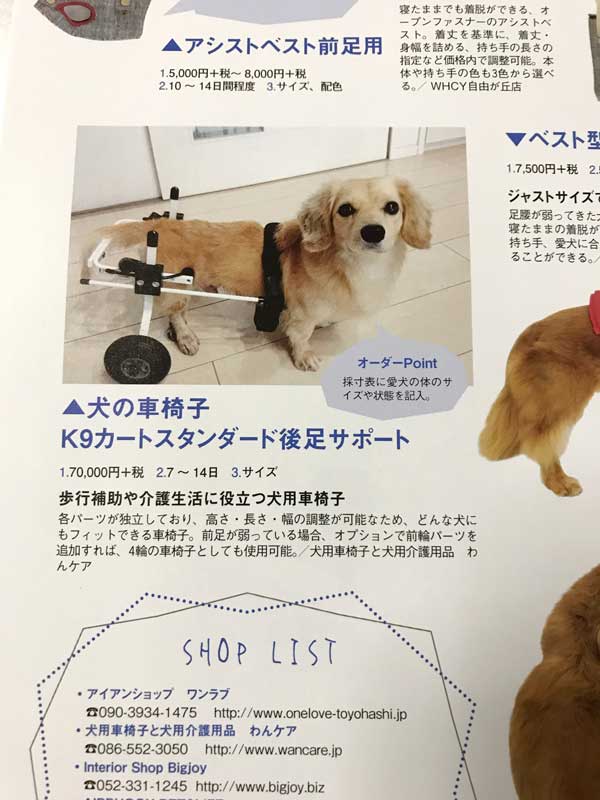 寝たままでも着脱ができる、オ
ープンファスナーのアシストベ
スト。着丈を基準に、着丈・
身幅を詰める、持ち手の長さの
指定など価格内で調整可能。本
体や持ち手の色も3色から選べ
る。／ WHCY自由が丘店
▲アシストベスト前足用
1.5,000円+税〜 8,000円+税
2.10 〜 14日間程度　3.サイズ、配色
▼ベスト型
1.7,500円+税
ジャストサイズで
足腰が弱ってきた犬
寝たままの着脱が
持ち手、愛犬に合
ることができる。／
オーダーPoint
採寸表に愛犬の体のサ
イズや状態を記入。
▲犬の車椅子
K9カートスタンダード後足サポート
1.70,000円+税　2.7 〜 14日　3.サイズ
歩行補助や介護生活に役立つ犬用車椅子
各パーツが独立しており、高さ・長さ・幅の調整が可能なため、どんな犬に
もフィットできる車椅子。前足が弱っている場合、オプションで前輪パーツを
追加すれば、4輪の車椅子としても使用可能。／犬用車椅子と犬用介護用品　わ
んケア
SHOP LIST
・アイアンショップ　ワンラブ
☎090-3934-1475　http://www.onelove-toyohashi.jp
・犬用車椅子と犬用介護用品　わんケア
☎086-552-3050　http://www.wancare.jp
・Interior Shop Bigjoy
☎052-331-1245　http://www.bigjoy.biz